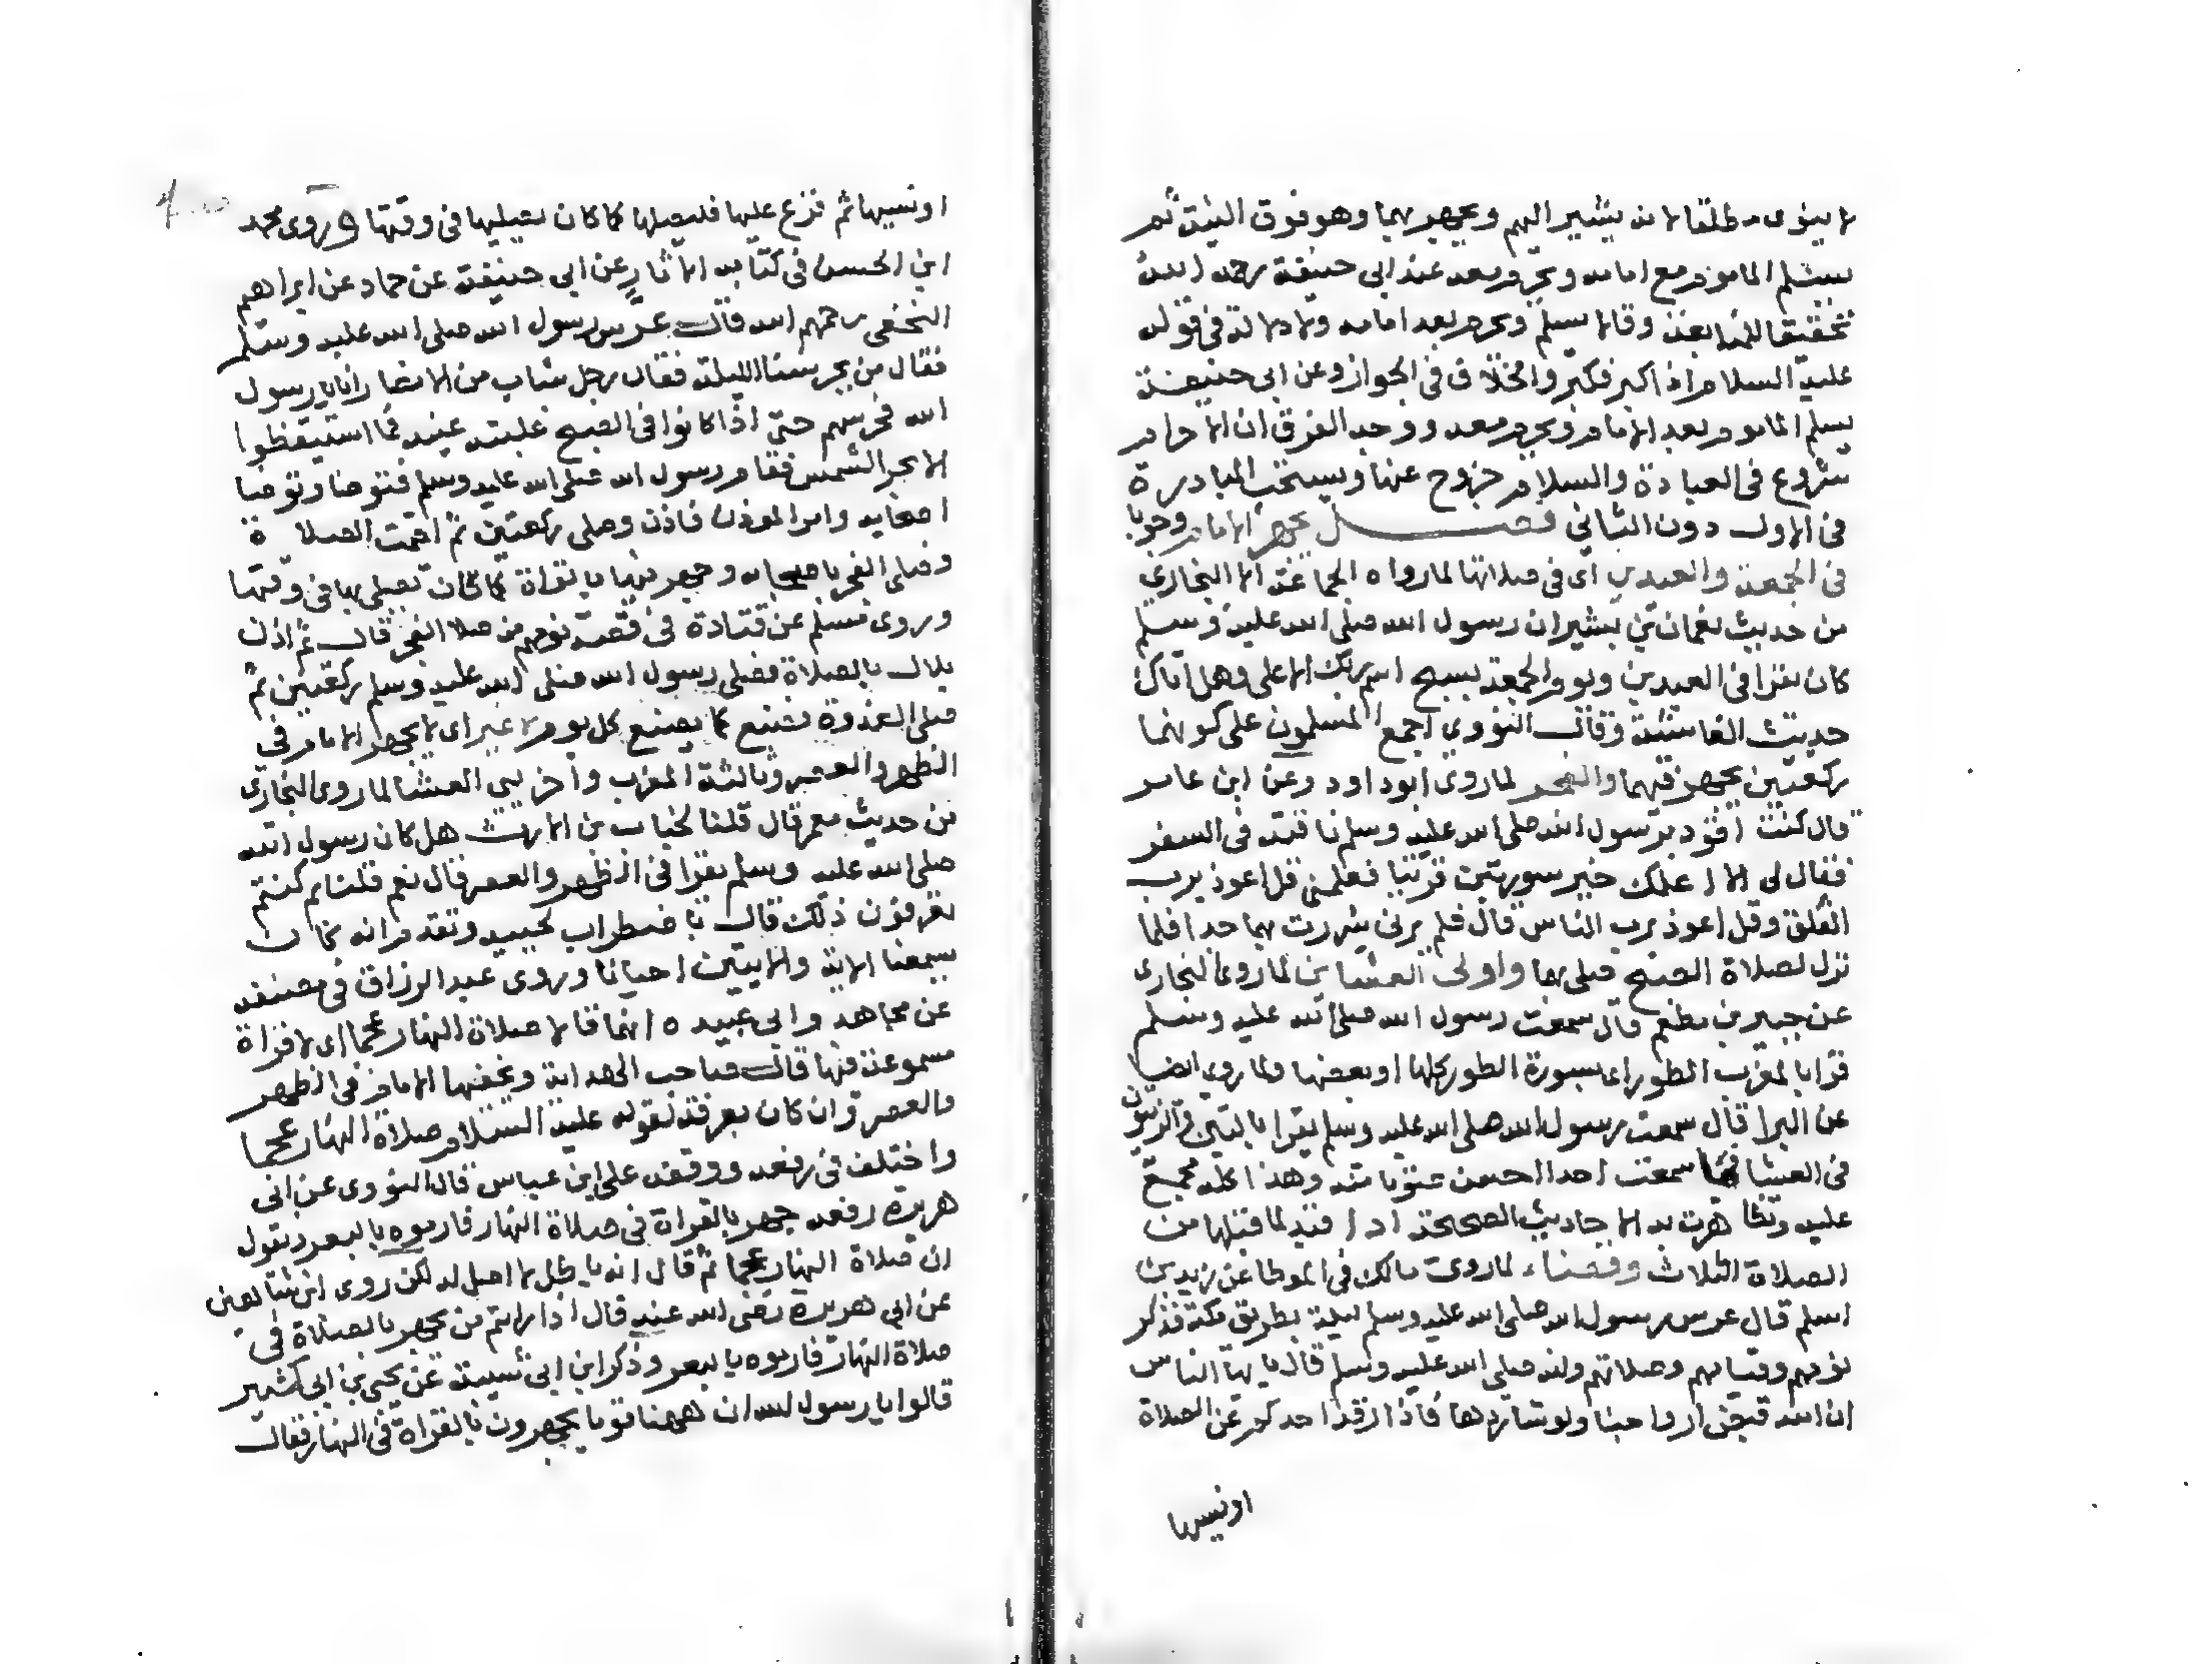 لا ينوى مطلقا لانه يشير اليهم ويجهر بهما وهو فوق النية ثم
يسلم الماموم مع امامه ويحرم معه عند ابى حنيفة رحمه الله
تحقيقا للمتابعة وقالا يسلم ويحرم بعد امامه ولا دلالة فى قوله
عليه السلام اذا كبر فكبروا والخلاف فى الجواز وعن ابى حنيفة
يسلم الماموم بعد الامام ويحرم معه ووجه الفرق ان الاحرام
شروع فى العبادة والسلام خروج عنها ويستحب المبادرة
فى الاول دون الثانى فصل يجهر الامام وجوبا
فى الجمعة والعيدين اى فى صلاتها لما رواه الجماعة الا البخارى
من حديث نعمان بن بشير ان رسول الله صلى الله عليه وسلم
كان يقرا فى العيدين ويوم الجمعة بسبح اسم ربك الاعلى وهل اتاك
حديث الغاشية وقال النووى اجمع المسلمون على كونهما
ركعتين يجهر فيهما والفجر لما روى ابو داود وعن ابن عامر
قال كنت اقود برسول الله صلى الله عليه وسلم ناقته فى السفر
فقال لى الا اعلمك خير سورتين قريتا فعلمنى قل اعوذ برب
الفلق وقل اعوذ برب الناس قال فلم يرنى سررت بهما جدا فلما
نزل لصلاة الصبح صلى بهما واولى العشاين لما روى البخارى
عن جبير بن مطعم قال سمعت رسول الله صلى الله عليه وسلم
قرا بالمغرب الطور اى بسورة الطور كلها او بعضها ولما روى ايضا
عن البرا قال سمعت رسول الله صلى الله عليه وسلم يقرا بالتين والزيتون
فى العشا فما سمعت احدا احسن صوتا منه وهذا كله مجمع
عليه وتظاهرت به الاحاديث الصحيحة ادا قيد لما قبلها من
الصلاة الثلاث وقضاء لما روى مالك فى الموطا عن زيد بن
اسلم قال عرس رسول الله صلى الله عليه وسلم ليلة بطريق مكة فذكر
نومهم وقيامهم وصلاتهم وانه صلى الله عليه وسلم قال يايها الناس
ان الله قبض ارواحنا ولو شا ردها فاذا رقد احدكم عن الصلاة
او نسيها
او نسيها ثم فزع عليها فليصلها كما كان يصليها فى وقتها وروى محمد
ابن الحسن فى كتابه الاثار عن ابى حنيفة عن حماد عن ابراهيم
النخعى رحمهم الله قال عرس رسول الله صلى الله عليه وسلم
فقال من يحرسنا الليلة فقال رجل شاب من الانصار انا يا رسول
الله فحرسهم حتى اذا كانوا فى الصبح غلبته عينه فما استيقظوا
الا بحر الشمس فقام رسول الله صلى الله عليه وسلم فتوضا وتوضا
اصحابه وامر الموذن فاذن وصلى ركعتين ثم اقيمت الصلاة
وصلى الفجر باصحابه وجهر فيها بالقراة كما كان يصلى بها فى وقتها
وروى مسلم عن قتادة فى قصة نومهم من صلاة الفجر قال ثم اذن
بلال بالصلاة فصلى رسول الله صلى الله عليه وسلم ركعتين ثم
صلى الغدوة فصنع كما يصنع كل يوم لا غير اى لا يجهر الامام فى
الظهر والعصر وثالثة المغرب واخريى العشا لما روى البخارى
من حديث معمر قال قلنا لخباب بن الارت هل كان رسول الله
صلى الله عليه وسلم يقرا فى الظهر والعصر قال نعم قلنا بم كنتم
تعرفون ذلك قال باضطراب لحييه وتقدم انه كان
يسمعنا الاية والايتين احيانا وروى عبد الرزاق فى مصنفه
عن مجاهد وابى عبيدة انهما قالا صلاة النهار عجما اى لا قراة
مسموعة فيها قال صاحب الهداية ويخفيها الامام فى الظهر
والعصر وان كان بعرفة لقوله عليه السلام صلاة النهار عجما
واختلف فى رفعه ووقفه على ابن عباس قال النووى عن ابى
هريرة رفعه جهر بالقراة فى صلاة النهار فارموه بالبعر ويقول
ان صلاة النهار عجما ثم قال انه باطل لا اصل له لكن روى ابن شاهين
عن ابى هريرة رضى الله عنه قال اذا رايتم من يجهر بالصلاة فى
صلاة النهار فارموه بالبعر وذكر ابن ابى شيبة عن يحيى بن ابى كثير
قالوا يا رسول الله ان ههنا قوما يجهرون بالقراة فى النهار فقال